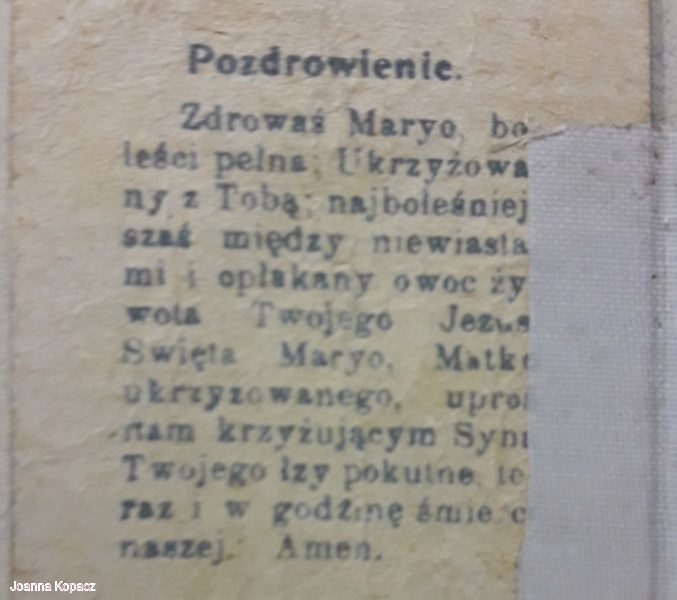 Pozdrowienie.
Zdrowaś Maryo, bo
leści pełna, Ukrzyżowa
ny z Tobą; najboleśniej
szaś między niewiasta
mi i opłakany owoc ży
wota Twojego Jezus
Święta Maryo, Matko
ukrzyżowanego, upro
nam krzyżującym Syn
Twojego łzy pokutne te
raz i w godzinę śmierc
naszej. Amen.
Joanna Kopacz